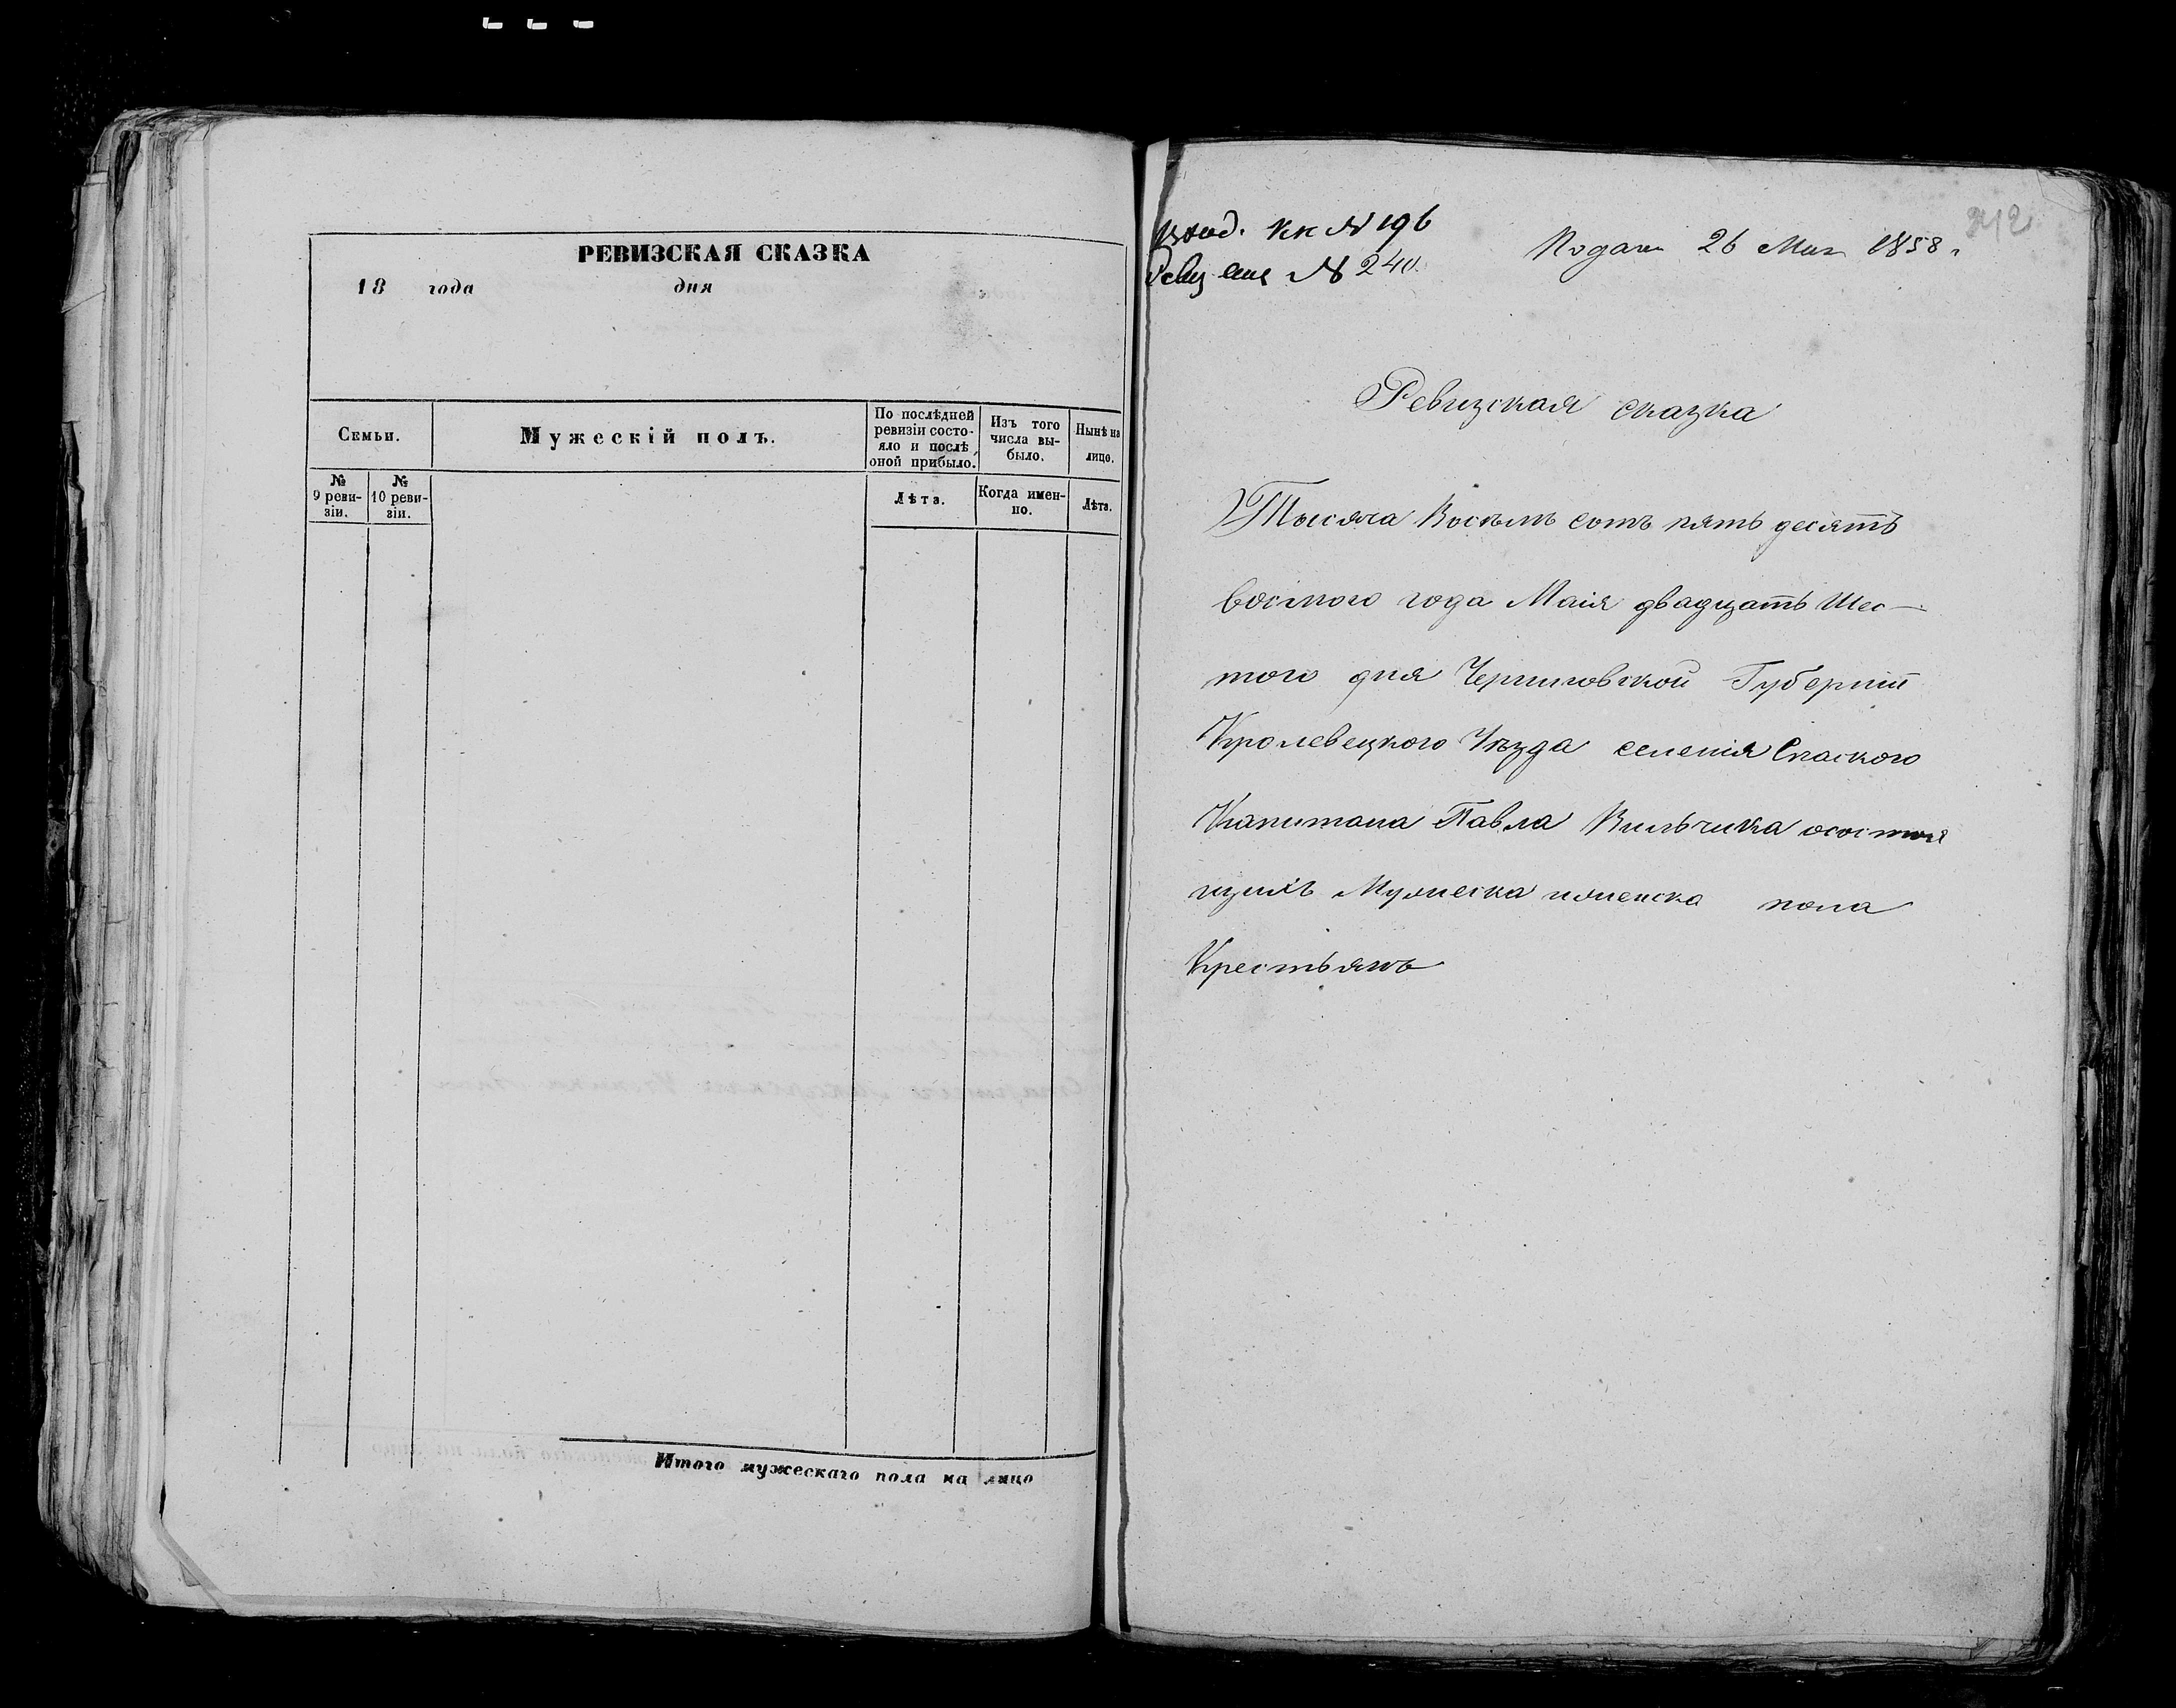 РЕВИЗСКАЯ СКАЗКА
18 года дня
Семьи.
Мужескій полъ.
По послѣдней ревизіи состо-
яло и послѣ оной прибыло.
Изъ того числа вы-
было.
Нынѣ на лицо.
№ 9 реви-
зіи.
№ 10 реви-
зіи.
Лѣта.
Когда имен-
но.
Лѣта.
Итого мужескаго пола на лицо
242
вход. кк № 196
№ 240
26 Мая 1858
Ревизская сказка
Тысяча Восемь сотъ пять десятъ
восмого года Маія двадцать Шес-
того дня Черниговской Губерніи
Кролевецкого Уѣзда селенія Спаского
Капитана Павла Вильчика осостоя
щихъ Мужеска иженска пола
Крестьянъ